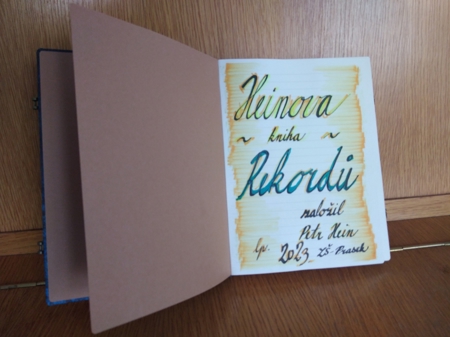 Heinova
~ kniha ~
Rekordů
založil
Petr Hein
lp. 2023 ZŠ-Prasek